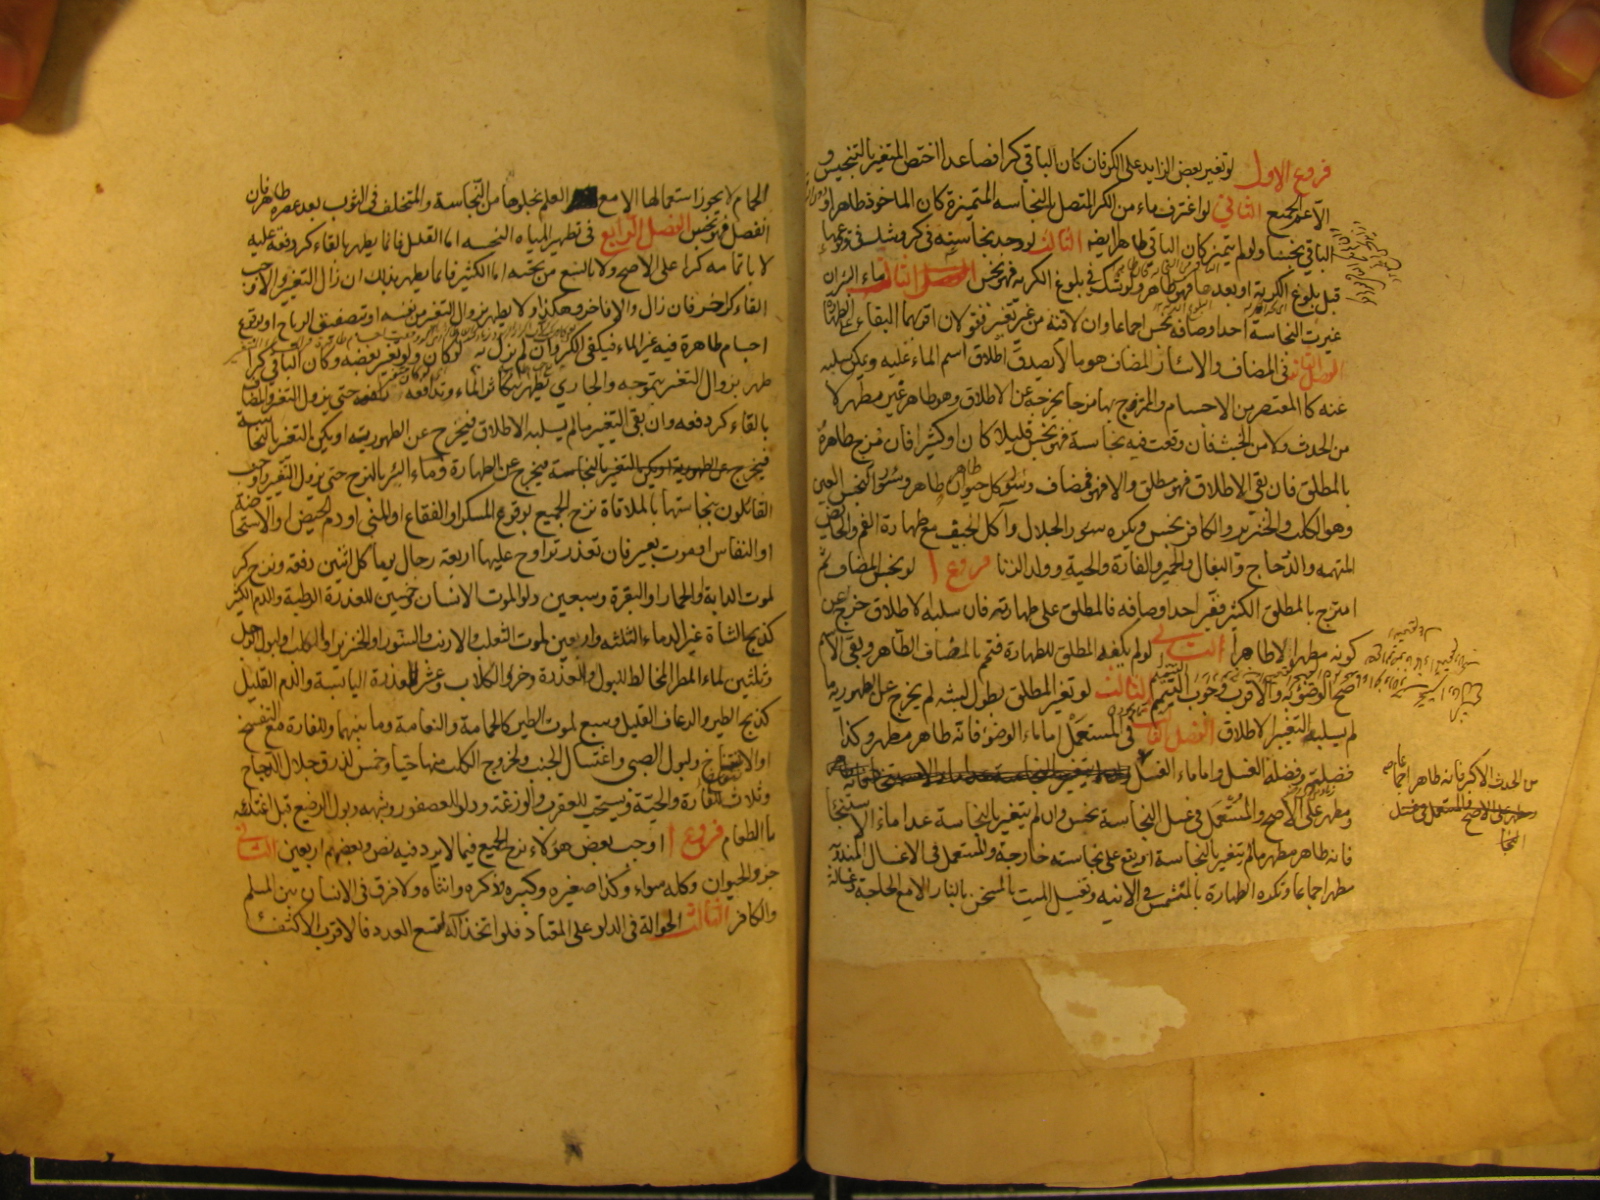 فروع الاول لو تغير بعض الزايد على الكر فان كان الباقي كرا فصاعدا اختص المتغير بالتنجيس و
الا عم الجميع الثاني لو اغترف ماء من الكر المتصل النجاسة المتميزة كان الماخوذ طاهرا و
الباقي نجسا ولو لم يتميز كان الباقي طاهرا ايضا الثالث لو وجد نجاسته في كر وشك في وقوعها
قبل بلوغ الكرية او بعدها فهو طاهر ولو شك في بلوغ الكرية فهو نجس ماء البئر ان
غيرت النجاسة احد اوصافه نجس اجماعا وان لاقته من غير تغيير فقولان اقربهما البقاء على الطهارة
الفصل الثاني في المضاف والاسئار المضاف هو ما لا يصدق اطلاق اسم الماء عليه ويمكن سلبه
عنه كالمعتصر من الاجسام والممتزج بها مزجا يخرجه عن الاطلاق وهو طاهر غير مطهر لا
من الحدث ولا من الخبث فان وقعت فيه نجاسة فهو نجس قليلا كان او كثيرا فان مزج طاهره
بالمطلق فان بقي الاطلاق فهو مطلق والا فهو مضاف وسؤر كل حيوان طاهر طاهر وسؤر النجس العين
وهو الكلب والخنزير والكافر نجس ويكره سور الجلال وآكل الجيف مع طهارة الفم والحايض
المتهمه والدجاج والبغال والحمير والفارة والحية وولد الزنا فروع ا لو نجس المضاف ثم
امتزج بالمطلق الكثير فغير احد اوصافه فالمطلق على طهارته فان سلبه الاطلاق خرج عن
كونه مطهرا لا طاهرا الثاني لو لم يكفه المطلق للطهارة فتمم بالمضاف الطاهر وبقي الاسم
صح الوضوء به والاقرب وجوب التيمم الثالث لو تغير المطلق بطول لبثه لم يخرج عن الطهورية ما
لم يسلبه التغير الاطلاق الفصل الثالث في المستعمل اما ماء الوضوء فانه طاهر مطهر وكذا
فضلته وفضلة الغسل واما ماء الغسل
ومطهر على الاصح والمستعمل في غسل النجاسة نجس وان لم يتغير بالنجاسة عدا ماء الاستنجا
فانه طاهر مطهر ما لم يتغير بالنجاسة او يقع على نجاسة خارجة والمستعمل في الاغسال المندوبة
مطهر اجماعا وتكره الطهارة بالمشمس في الانية وتغسيل الميت بالمسخن بالنار الا مع الحاجة وغسالة
من الحدث الاكبر فانه طاهر اجماعا
الحمام لا يجوز استعمالها الا مع العلم بخلوها من النجاسة والمتخلف في الثوب بعد عصره طاهر فان
انفصل فهو نجس الفصل الرابع في تطهير المياه النجسه اما القليل فانما يطهر بالقاء كر دفعة عليه
لا باتمامه كرا على الاصح ولا بالنبع من تحته اما الكثير فانما يطهر بذلك ان زال التغير والا وجب
القاء كر اخر فان زال والا فاخر وهكذا ولا يطهر بزوال التغير من نفسه او بتصفيق الرياح او بوقوع
اجسام طاهرة فيه غير الماء فيكفي الكر وان لم يزل به لو كان ولو تغير بعضه وكان الباقي كرا
طهر بزوال التغير بتموجه والجاري يطهر بتكاثر الماء وتدافعه حتى يزول التغير والمضاف
بالقاء كر دفعه وان بقي التغير ما لم يسلبه الاطلاق فيخرج عن الطهورية او يكن التغير بالنجاسة
فيخرج عن الطهارة وماء البئر بالنزح حتى يزول التغير واوجب
القائلون بنجاستها بالملاقاة نزح الجميع لوقوع المسكر او الفقاع او المني او دم الحيض او الاستحاضة
او النفاس او موت بعير فان تعذر تراوح عليها اربعة رجال يوما كل اثنين دفعه ونزح كر
لموت الدابة والحمار والبقرة وسبعين دلوا لموت الانسان وخمسين للعذرة الرطبة والدم الكثير
كذبح الشاة غير الدماء الثلثه واربعين لموت الثعلب والارنب والسنور والخنزير والكلب او لبول الرجل
وثلثين لماء المطر المخالط للبول والعذرة وخرؤ الكلاب وعشر للعذرة اليابسة والدم القليل
كذبح الطير والرعاف القليل وسبع لموت الطير كالحمامة والنعامة وما بينهما وللفارة مع التفسخ
او الانتفاخ ولبول الصبي واغتسال الجنب ولخروج الكلب منها حيا وخمس لذرق جلال الدجاج
وثلاث للفأرة والحية ويستحب للعقرب والوزغة ودلو للعصفور وشبهه وبول الرضيع قبل اغتذائه
بالطعام فروع ا اوجب بعض هؤلاء نزح الجميع فيما لا يرد فيه نص وبعضهم اربعين الثاني
جزؤ الحيوان وكله سواء وكذا صغيره وكبيره وذكره وانثاه ولا فرق في الانسان بين المسلم
والكافر الثالث الحوالة في الدلو على المعتاد فلو اتخذ آلة تسع العدد فالاقرب الاكتفا